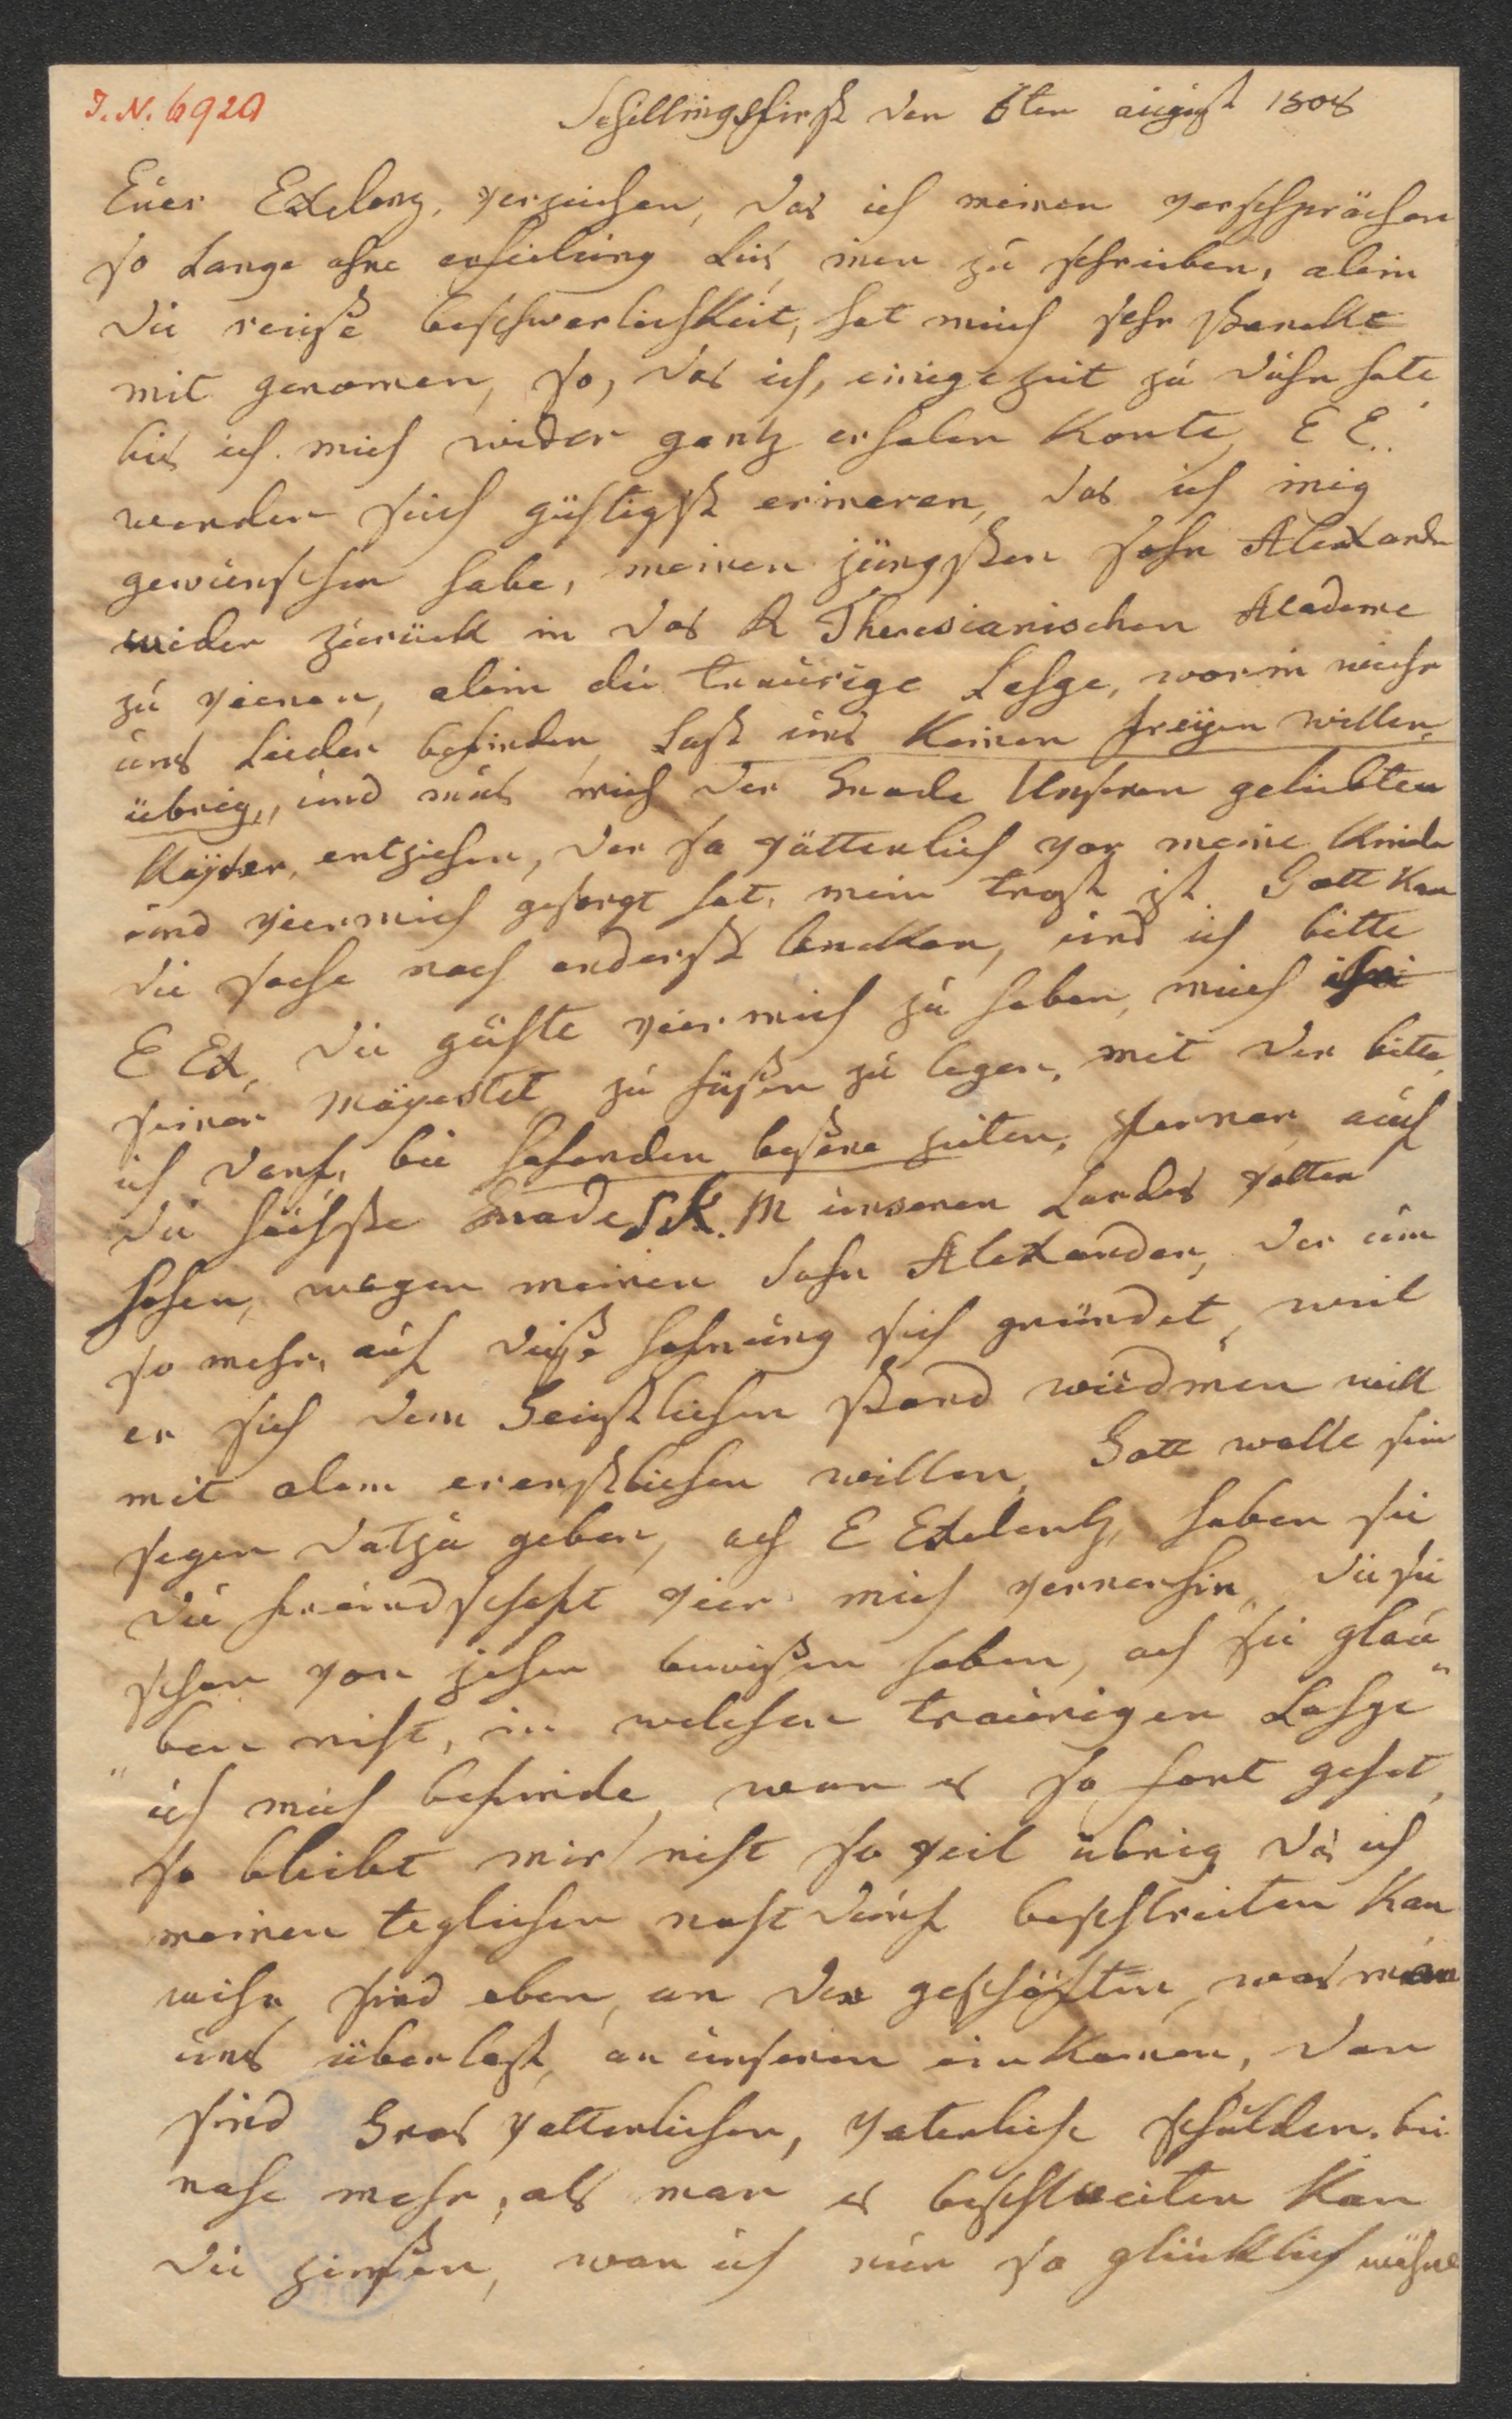 I. N. 6920
Schillingsfirst den 6ten august 1808
Euer Exelenz, verzeichen, das ich meinen verschpröchen
so Lange ohne erfielung Lies, inen zu schreiben, alein
die reiße beschwerlichkeit, hat mich sehr starckt
mit genomen, so, das ich, einige zeit zu duhn hate
bis ich mich wider gantz erholen konte, E E..
werden sich güthigst erineren, das ich inig
gewünschen habe, meinen jüngsten sohn Alexander
wider zurück in das K Theresianischen Academe
zu vieren, alein die traurige Lahge, worin wiehr
uns Leider befinden, Last uns keinen freyen willen
übrig,, und mus mich der Gnade Unseren geliebten
Kayser, entziehen, der so vätterlich vor meine Kinder
und viermich gesorgt hat, mein trost ist Gott kan
die sache noch anderst lencken, und ich bitte
E Ex, die güthe vier mich zu haben, mich
seiner Mayestet zu füßen zu legen, mit der bitte,
ich darf, bei hofenden beßere zeiten, ferner auf
die höchste Gnade S.K. M unseren Landes vatter
hofen, wegen meinen sohn Alexander, der um
so mehr, auf dieße hofnung sich gründet, weil
er sich dem Geistlichen stand wiedmen will
mit alem erenstlichen willen, Gott wolle sein
segen datzu geben, ach E Exelentz, haben sie
die freundschaft vier mich vernerhin, die sie
schon von jeher beweißen haben, ach sie glau"
"ben nicht, in welchen traurigen Lahge
ich mich befinde, wan es so fort gehet,
so bleibt mir nicht so veil übrig das ich
meinen teglichen noht durf beschtreiten kan
wihr sind eben, an den geschöften, was man
uns überlast, an unseren einkomen, dan
sind Gros vatterlichen, vaterliche schulden, bei
nahe mehr, als man es beschtreiten kan
die zinßen, wan ich nur so glücklich wehre